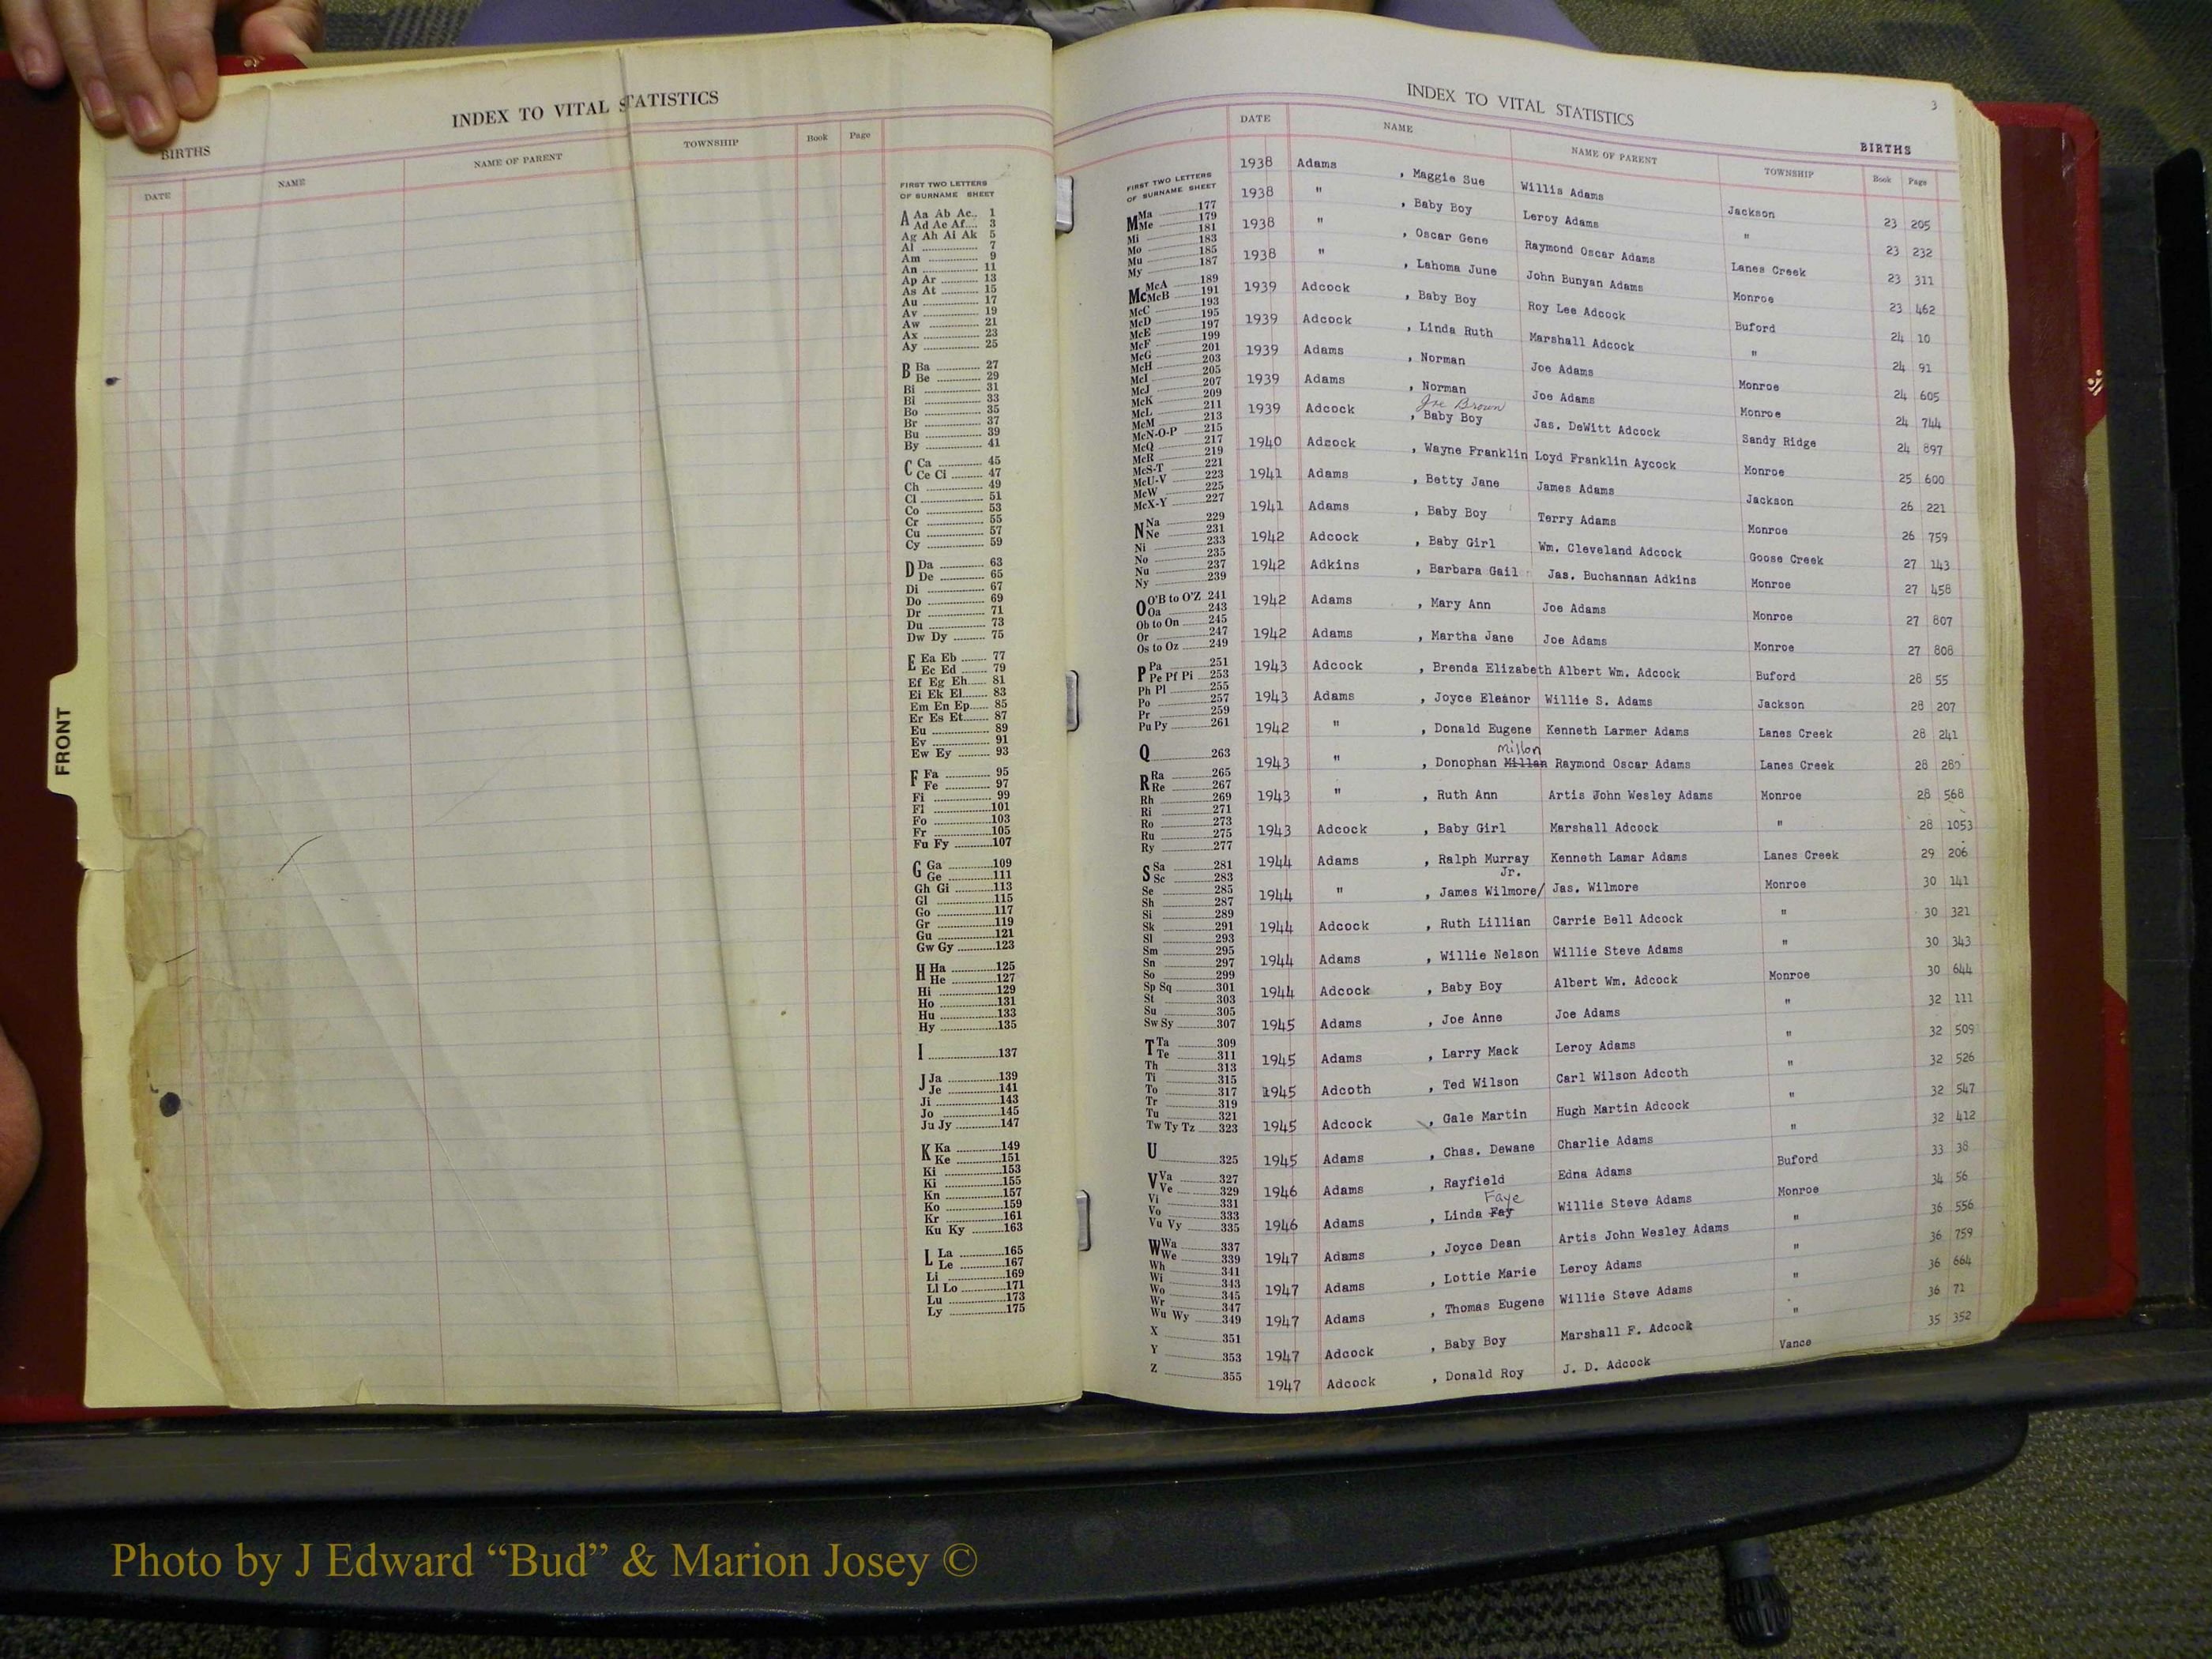 INDEX TO VITAL STATISTICS
BIRTHS
DATE NAME NAME OF PARENT TOWNSHIP Book Page
FIRST TWO LETTERS
OF SURNAME SHEET
A Aa Ab Ac.. 1
Ad Ae Af.... 3
Ag Ah Ai Ak 5
Al 7
Am 9
An 11
Ap Ar 13
As At 15
Au 17
Av 19
Aw 21
Ax 23
Ay 25
B Ba 27
Be 29
Bi 31
Bl 33
Bo 35
Br 37
Bu 39
By 41
C Ca 45
Ce Ci 47
Ch 49
Cl 51
Co 53
Cr 55
Cu 57
Cy 59
D Da 63
De 65
Di 67
Do 69
Dr 71
Du 73
Dw Dy 75
E Ea Eb 77
Ec Ed 79
Ef Eg Eh 81
Ei Ek El 83
Em En Ep 85
Er Es Et 87
Eu 89
Ev 91
Ew Ey 93
F Fa 95
Fe 97
Fi 99
Fl 101
Fo 103
Fr 105
Fu Fy 107
G Ga 109
Ge 111
Gh Gi 113
Gl 115
Go 117
Gr 119
Gu 121
Gw Gy 123
H Ha 125
He 127
Hi 129
Ho 131
Hu 133
Hy 135
I 137
J Ja 139
Je 141
Ji 143
Jo 145
Ju Jy 147
K Ka 149
Ke 151
Ki 153
Kl 155
Kn 157
Ko 159
Kr 161
Ku Ky 163
L La 165
Le 167
Li 169
Ll Lo 171
Lu 173
Ly 175
FRONT
INDEX TO VITAL STATISTICS
3
BIRTHS
DATE NAME NAME OF PARENT TOWNSHIP Book Page
FIRST TWO LETTERS
OF SURNAME SHEET
M Ma 177
Me 179
Mi 181
Mo 183
Mu 185
My 187
Mc McA 189
McB 191
McC 193
McD 195
McE 197
McF 199
McG 201
McH 203
McI 205
McJ 207
McK 209
McL 211
McM 213
McN-O-P 215
McQ 217
McR 219
McS-T 221
McU-V 223
McW 225
McX-Y 227
N Na 229
Ne 231
Ni 233
No 235
Nu 237
Ny 239
O O'B to O'Z 241
Oa 243
Ob to On 245
Or 247
Os to Oz 249
P Pa 251
Pe Pf Pi 253
Ph Pl 255
Po 257
Pr 259
Pu Py 261
Q 263
R Ra 265
Re 267
Rh 269
Ri 271
Ro 273
Ru 275
Ry 277
S Sa 281
Sc 283
Se 285
Sh 287
Si 289
Sk 291
Sl 293
Sm 295
Sn 297
So 299
Sp Sq 301
St 303
Su 305
Sw Sy 307
T Ta 309
Te 311
Th 313
Ti 315
To 317
Tr 319
Tu 321
Tw Ty Tz 323
U 325
V Va 327
Ve 329
Vi 331
Vo 333
Vu Vy 335
W Wa 337
We 339
Wh 341
Wi 343
Wo 345
Wr 347
Wu Wy 349
X 351
Y 353
Z 355
1938 Adams , Maggie Sue Willis Adams Jackson 23 205
1938 " , Baby Boy Leroy Adams " 23 232
1938 " , Oscar Gene Raymond Oscar Adams Lanes Creek 23 311
1938 " , Lahoma June John Bunyan Adams Monroe 23 462
1939 Adcock , Baby Boy Roy Lee Adcock Buford 24 10
1939 Adcock , Linda Ruth Marshall Adcock " 24 91
1939 Adams , Norman Joe Adams Monroe 24 605
1939 Adams , Norman Joe Adams Monroe 24 744
Joe Brown
1939 Adcock , Baby Boy Jas. DeWitt Adcock Sandy Ridge 24 897
1940 Adcock , Wayne Franklin Loyd Franklin Aycock Monroe 25 600
1941 Adams , Betty Jane James Adams Jackson 26 221
1941 Adams , Baby Boy Terry Adams Monroe 26 759
1942 Adcock , Baby Girl Wm. Cleveland Adcock Goose Creek 27 143
1942 Adkins , Barbara Gail Jas. Buchannan Adkins Monroe 27 458
1942 Adams , Mary Ann Joe Adams Monroe 27 807
1942 Adams , Martha Jane Joe Adams Monroe 27 808
1943 Adcock , Brenda Elizabeth Albert Wm. Adcock Buford 28 55
1943 Adams , Joyce Eleanor Willie S. Adams Jackson 28 207
1942 " , Donald Eugene Kenneth Larmer Adams Lanes Creek 28 241
Millon
1943 " , Donophan Millan Raymond Oscar Adams Lanes Creek 28 280
1943 " , Ruth Ann Artis John Wesley Adams Monroe 28 568
1943 Adcock , Baby Girl Marshall Adcock " 28 1053
1944 Adams , Ralph Murray Kenneth Lamar Adams Lanes Creek 29 206
Jr.
1944 " , James Wilmore/ Jas. Wilmore Monroe 30 141
1944 Adcock , Ruth Lillian Carrie Bell Adcock " 30 321
1944 Adams , Willie Nelson Willie Steve Adams " 30 343
1944 Adcock , Baby Boy Albert Wm. Adcock Monroe 30 644
1945 Adams , Joe Anne Joe Adams " 32 111
1945 Adams , Larry Mack Leroy Adams " 32 509
1945 Adcoth , Ted Wilson Carl Wilson Adcoth " 32 526
1945 Adcock , Gale Martin Hugh Martin Adcock " 32 547
1945 Adams , Chas. Dewane Charlie Adams " 32 412
1946 Adams , Rayfield Edna Adams Buford 33 38
Faye
1946 Adams , Linda Fay Willie Steve Adams Monroe 34 56
1947 Adams , Joyce Dean Artis John Wesley Adams " 36 556
1947 Adams , Lottie Marie Leroy Adams " 36 759
1947 Adams , Thomas Eugene Willie Steve Adams " 36 664
1947 Adcock , Baby Boy Marshall F. Adcock " 36 71
1947 Adcock , Donald Roy J. D. Adcock Vance 35 352
Photo by J Edward “Bud” & Marion Josey ©